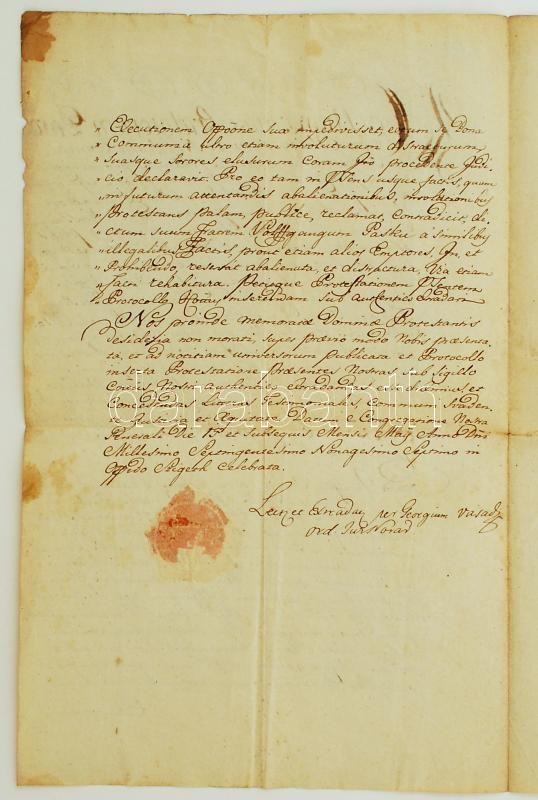 " Executionem Oppone suae impedivisset, eorum se Bona
" Communia libro etiam involuturum distracturum,
" Suasque Sorores elusurum Coram procedente Judi-
" cio declaravit. Pro eo tam in usque factis, quam
" in futurum attentandis abalienationibus, involutionibus
" Protestans palam, publice, reclamat, Contradicit, di-
" ctum suum Fratrem Volffgangum Pasku a similibus
" illegalibus Factis, prout etiam alios Emptores, et
" Prohibendo, resultat abalienata, et distractura, Via etiam
" facti rehabitura. Petiique Protestationem
" Protocollo inserendam sub authentico Extradari
Nos proinde memoratae Dominae Protestantis
desideria non morati, super praevio modo Nobis praesenta-
ta, et ad notitiam universorum publicata et Protocollo
inserta Protestatione praesentes Nostras sub Sigillo
Nostri authentico extradandas et
Concedendas Litteras Testimoniales, Communi svaden-
te Justitia et Aequitate. Dat. e Congregatione Nostra
Die et Subsequis. Mensis Maij Anno Dni
Millesimo Septingentesimo Nonagesimo Septimo in
Oppido Szigeth Celebrata.
Lect. et Extradat. per Georgium Vasady
Ord. Jur. Notar.
darabanth